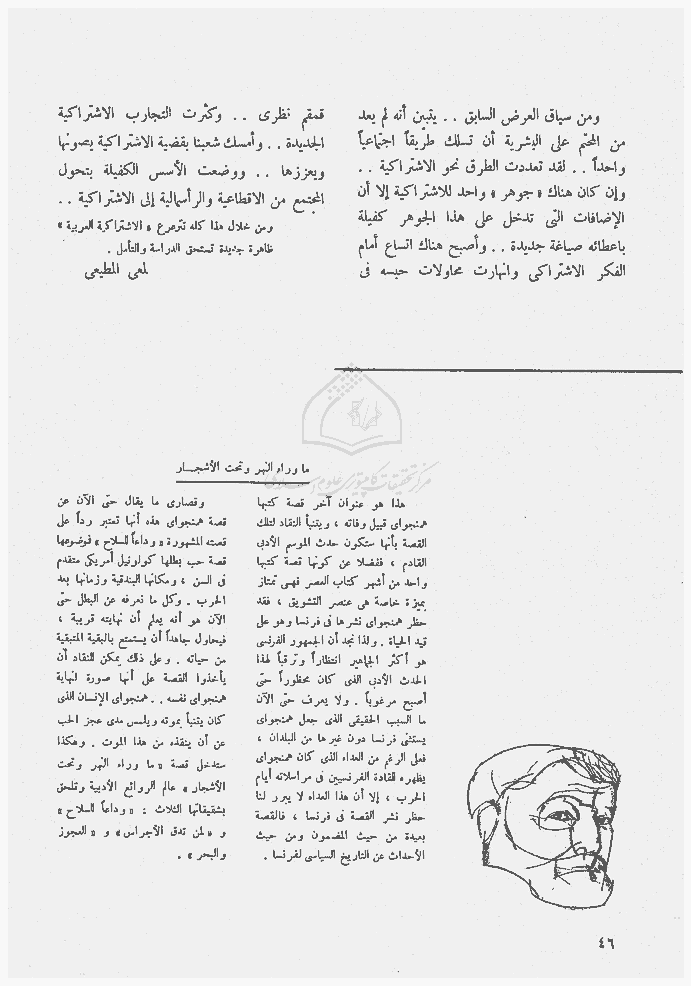 ومن سياق العرض السابق .. يتبين أنه لم يعد
من المحتم على البشرية أن تسلك طريقاً اجتماعياً
واحداً .. لقد تعددت الطرق نحو الاشتراكية ..
وإن كان هناك « جوهر » واحد للاشتراكية إلا أن
الإضافات التى تدخل على هذا الجوهر كفيلة
باعطائه صياغة جديدة .. وأصبح هناك اتساع أمام
الفكر الاشتراكى وانهارت محاولات حبسه فى
قمقم نظرى .. وكثرت التجارب الاشتراكية
الجديدة .. وأمسك شعبنا بقضية الاشتراكية يصونها
ويعززها .. ووضعت الأسس الكفيلة بتحول
المجتمع من الاقطاعية والرأسمالية إلى الاشتراكية ..
ومن خلال هذا كله تترعرع « الاشتراكية العربية »
ظاهرة جديدة تستحق الدراسة والتأمل .
لمعى المطيعى
مركز تحقيقات كامپيوترى علوم اسلامى
ما وراء النهر وتحت الأشجار
هذا هو عنوان آخر قصة كتبها
همنجواى قبيل وفاته ، ويتنبأ النقاد لتلك
القصة بأنها ستكون حدث الموسم الأدبى
القادم ، ففضلا عن كونها قصة كتبها
واحد من أشهر كتاب العصر فهى تمتاز
بميزة خاصة هى عنصر التشويق ، فقد
حظر همنجواى نشرها فى فرنسا وهو على
قيد الحياة . ولذا نجد أن الجمهور الفرنسى
هو أكثر الجماهير انتظاراً وترقباً لهذا
الحدث الأدبى الذى كان محظوراً حتى
أصبح مرغوباً . ولا يعرف حتى الآن
ما السبب الحقيقى الذى جعل همنجواى
يستثنى فرنسا دون غيرها من البلدان ،
فعلى الرغم من العداء الذى كان همنجواى
يظهره للقادة الفرنسيين فى مراسلاته أيام
الحرب ، إلا أن هذا العداء لا يبرر لنا
حظر نشر القصة فى فرنسا ، فالقصة
بعيدة من حيث المضمون ومن حيث
الأحداث عن التاريخ السياسى لفرنسا .
وقصارى ما يقال حتى الآن عن
قصة همنجواى هذه أنها تعتبر رداً على
قصته المشهورة « وداعاً للسلاح » فوضوعها
قصة حب بطلها كولونيل أمريكى متقدم
فى السن ، ومكانها البندقية وزمانها بعد
الحرب . وكل ما نعرفه عن البطل حتى
الآن هو أنه يعلم أن نهايته قريبة ،
فيحاول جاهداً أن يستمتع بالبقية المتبقية
من حياته . وعلى ذلك يمكن للنقاد أن
يأخذوا القصة على أنها صورة لنهاية
همنجواى نفسه .. همنجواى الإنسان الذى
كان يتنبأ بموته ويلمس مدى عجز الحب
عن أن ينقذه من هذا الموت . وهكذا
ستدخل قصة « ما وراء النهر وتحت
الأشجار » عالم الروائع الأدبية وتلحق
بشقيقاتها الثلاث : « وداعاً للسلاح »
و « لمن تدق الأجراس » و « العجوز
والبحر » .
٤٦